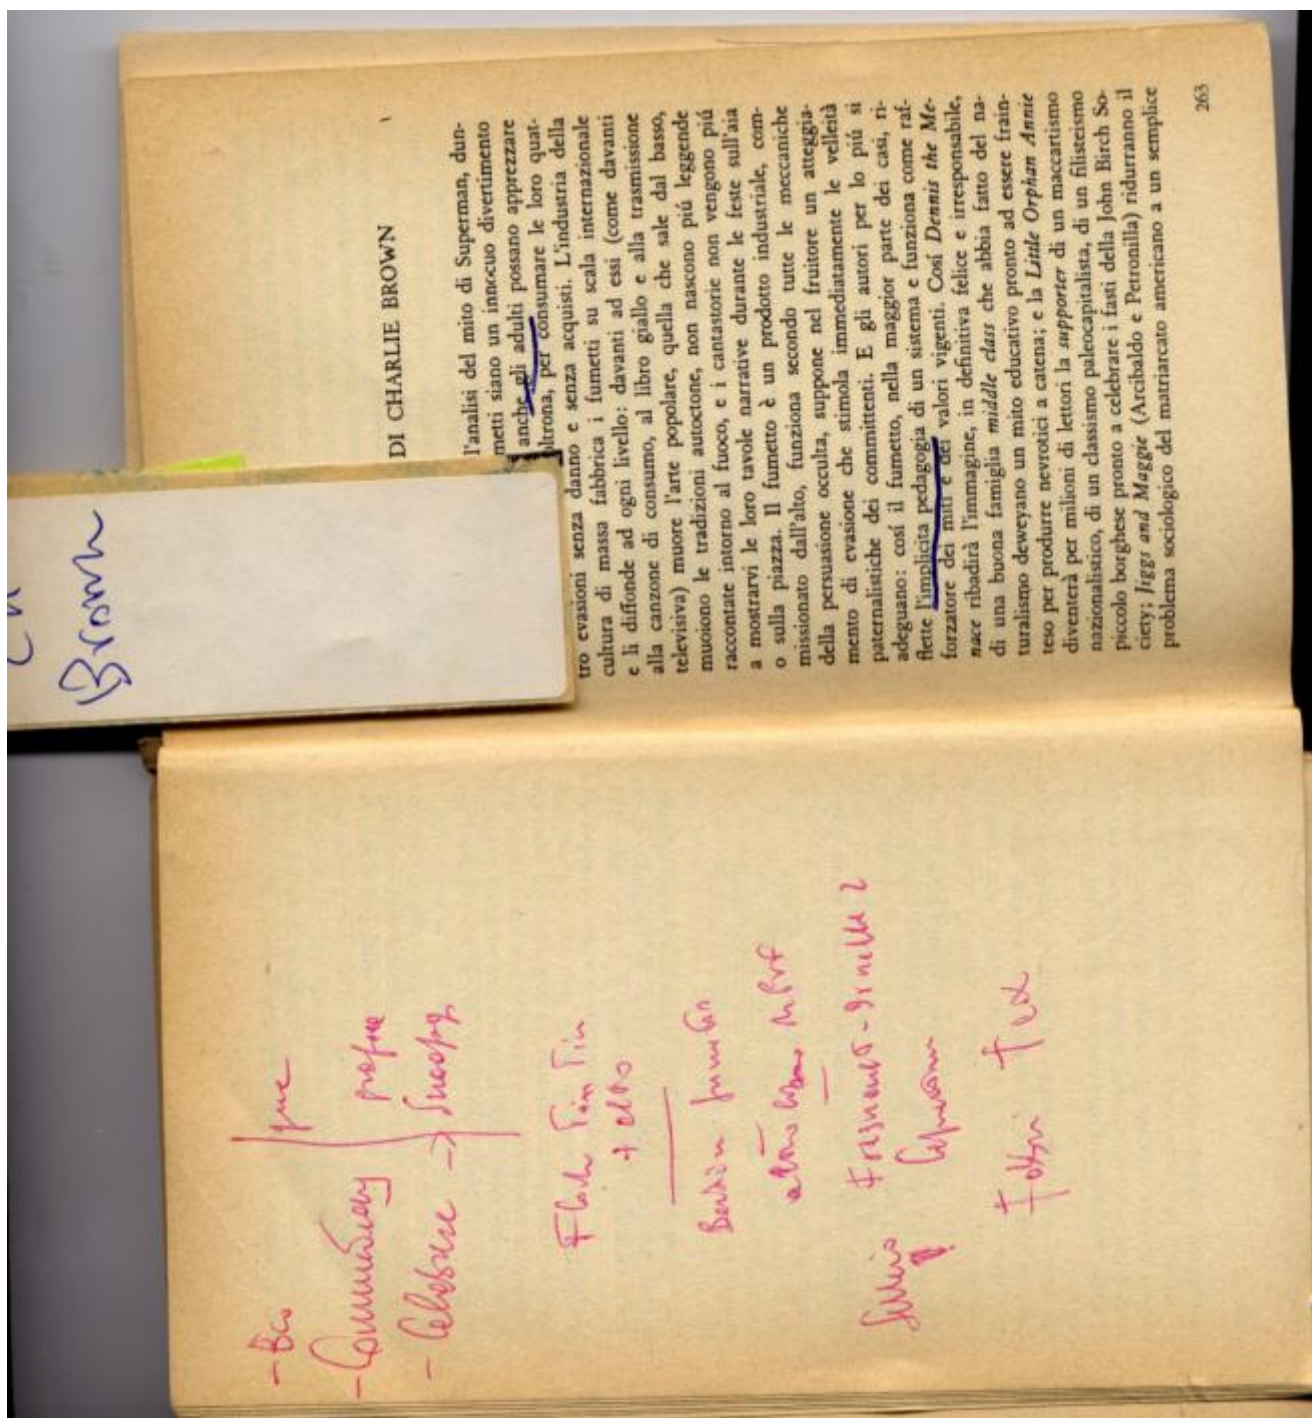 Brown
DI CHARLIE BROWN
l'analisi del mito di Superman, dun-
metti siano un innocuo divertimento
anche gli adulti possano apprezzare
oltrona, per consumare le loro quat-
tro evasioni senza danno e senza acquisti. L'industria della
cultura di massa fabbrica i fumetti su scala internazionale
e li diffonde ad ogni livello: davanti ad essi (come davanti
alla canzone di consumo, al libro giallo e alla trasmissione
televisiva) muore l'arte popolare, quella che sale dal basso,
muoiono le tradizioni autoctone, non nascono piú leggende
raccontate intorno al fuoco, e i cantastorie non vengono piú
a mostrarvi le loro tavole narrative durante le feste sull'aia
o sulla piazza. Il fumetto è un prodotto industriale, com-
missionato dall'alto, funziona secondo tutte le meccaniche
della persuasione occulta, suppone nel fruitore un atteggia-
mento di evasione che stimola immediatamente le velleità
paternalistiche dei committenti. E gli autori per lo piú si
adeguano: cosí il fumetto, nella maggior parte dei casi, ri-
flette l'implicita pedagogia di un sistema e funziona come raf-
forzatore dei miti e dei valori vigenti. Cosí Dennis the Me-
nace ribadirà l'immagine, in definitiva felice e irresponsabile,
di una buona famiglia middle class che abbia fatto del na-
turalismo deweyano un mito educativo pronto ad essere frain-
teso per produrre nevrotici a catena; e la Little Orphan Annie
diventerà per milioni di lettori la supporter di un maccartismo
nazionalistico, di un classismo paleocapitalista, di un filisteismo
piccolo borghese pronto a celebrare i fasti della John Birch So-
ciety; Jiggs and Maggie (Arcibaldo e Petronilla) ridurranno il
problema sociologico del matriarcato americano a un semplice
263
- Eco
- Snoopy
Tin Tin